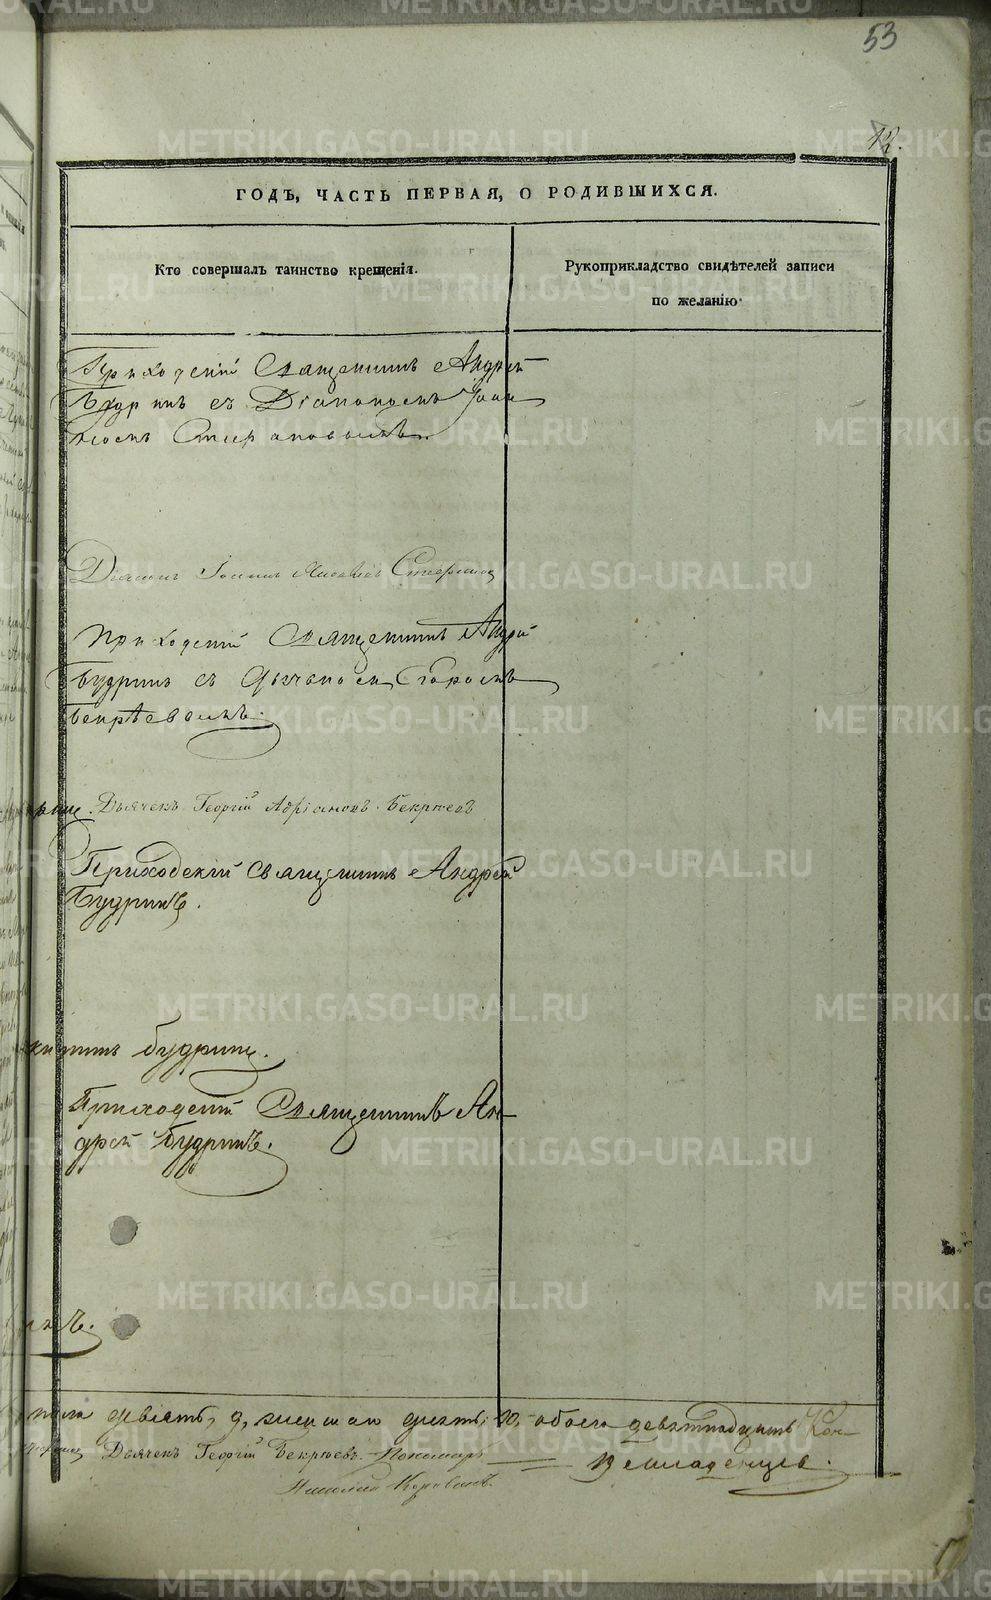 53
12.
ГОДЪ, ЧАСТЬ ПЕРВАЯ, О РОДИВШИХСЯ.
Кто совершалъ таинство крещенія.
Рукоприкладство свидѣтелей записи
по желанію
Приходскій Священникъ Андрей
Будринъ съ Діакономъ Іоан
номъ
Діаконъ Іоаннъ
Приходскій Священникъ Андрей
Будринъ съ Дьячкомъ Егоромъ
Бекрѣевымъ.
Дьячекъ Георгій Адріановъ Бекрѣевъ
Приходскій священникъ Андрей
Будринъ.
Будринъ.
Приходскій Священникъ Ан-
дрей Будринъ.
пола девять, 9, женскаго десять, 10, обоего девятнадцать
Дьячекъ Георгій Бекрѣевъ. Пономарь
младенцевъ.
Николай
METRIKI.GASO-URAL.RU